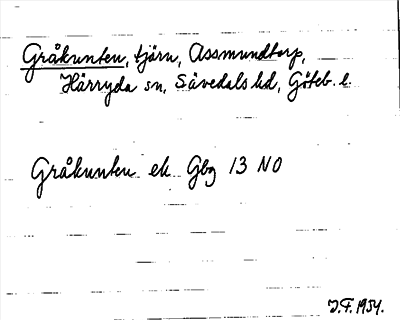 Gråkunten, tjärn, Assmundtorp,
Härryda sn, Sävedals hd, Göteb. l.
Gråkunten ek Gbg 13 NO
J.F. 1954.